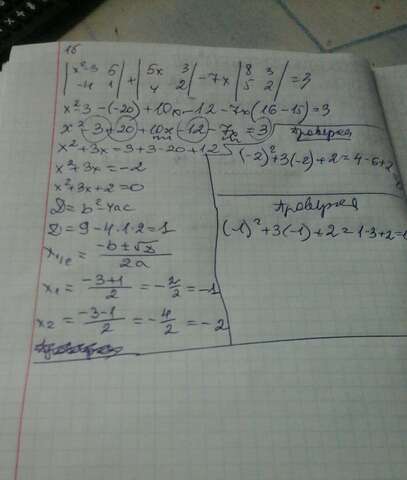 16
|x²-3 5| + |5x 3| - 7x |8 3| = 3
|-4 1| |4 2| |5 2|
x²-3-(-20)+10x-12-7x(16-15)=3
x²-3+20+10x-12-7x=3
x²+3x=3+3-20+12
x²+3x=-2
x²+3x+2=0
D=b²-4ac
D=9-4·1·2=1
x₁/₂ = (-b±√D)/2a
x₁ = (-3+1)/2 = -2/2 = -1
x₂ = (-3-1)/2 = -4/2 = -2
Проверка
(-2)²+3(-2)+2=4-6+2=
Проверка
(-1)²+3(-1)+2=1-3+2=